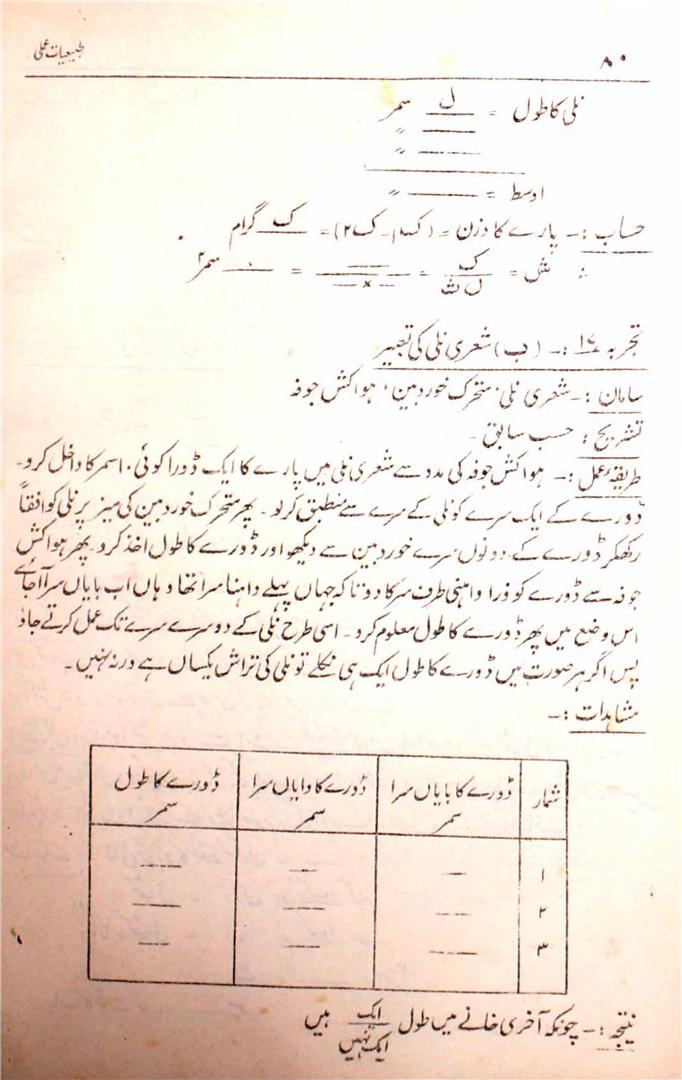 ۸۰ طبیعیات عملی
نلی کا طول = ل سمر
___ "
___ "
اوسط = ___ "
حساب :۔ پارے کا وزن = (ک۱ ۔ ک۲) = ک گرام
∴ ش = ک / ل ث = ___ / ___ × ___ = ___ سمر۲
تجربہ ۱۷ :۔ (ب) شعری نلی کی تعبیر
سامان :۔ شعری نلی، متحرک خوردبین، ہوا کش جوفہ
تشریح : حسب سابق ۔
طریقۂ عمل :۔ ہوا کش جوفہ کی مدد سے شعری نلی میں پارے کا ایک ڈورا کوئی ۱۰ سمر کا داخل کرو۔
ڈورے کے ایک سرے کو نلی کے سرے سے منطبق کر لو ۔ پھر متحرک خوردبین کی میز پر نلی کو افقاً
رکھکر ڈورے کے دونوں سرے خوردبین سے دیکھو اور ڈورے کا طول اخذ کرو۔ پھر ہوا کش
جوفہ سے ڈورے کو ذرا داہنی طرف سرکا دو تاکہ جہاں پہلے داہنا سرا تھا وہاں اب بایاں سرا آجائے
اس وضع میں پھر ڈورے کا طول معلوم کرو ۔ اسی طرح نلی کے دوسرے سرے تک عمل کرتے جاؤ
پس اگر ہر صورت میں ڈورے کا طول ایک ہی نکلے تو نلی کی تراش یکساں ہے ورنہ نہیں ۔
مشاہدات :۔
شمار ڈورے کا بایاں سرا ڈورے کا دایاں سرا ڈورے کا طول
سمر سمر سمر
۱ ___ ___ ___
۲ ___ ___ ___
۳ ___ ___ ___
نتیجہ :۔ چونکہ آخری خانے میں طول ایک / ایک نہیں ہیں